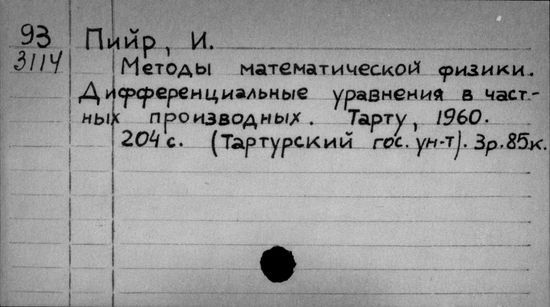 93 Пийр, И.
3114
Методы математической физики.
Дифференциальные уравнения в част-
ных производных. Тарту, 1960.
204 с. (Тартурский гос. ун-т). 3р.85к.